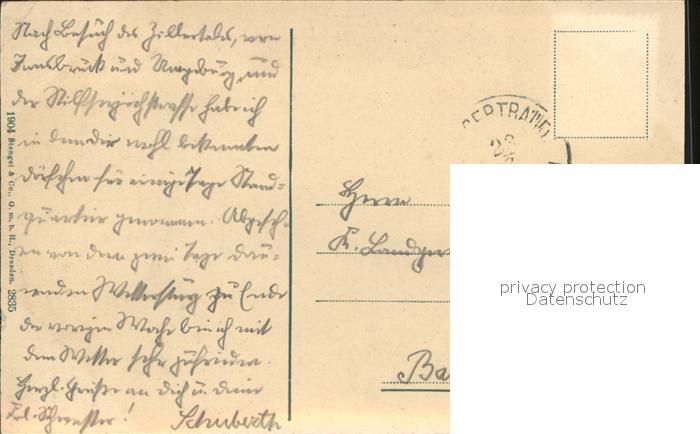 Nach Besuch des Zillertales, von
Innsbruck und Umgebung und
der Stilfserjochstrasse habe ich
in dem dir wohl bekannten
Dörfchen für einige Tage Stand-
quartier genommen. Abgeseh-
en von dem zwei Tage dau-
ernden Wettersturz zu Ende
der vorigen Woche bin ich mit
dem Wetter sehr zufrieden.
Herzl. Grüße an Dich u. deine
Frl. Schwester!
Schuberth
1904 Stengel & Co., G. m. b. H., Dresden. 2835
Herrn
K. Landger
Ba
privacy protection
Datenschutz